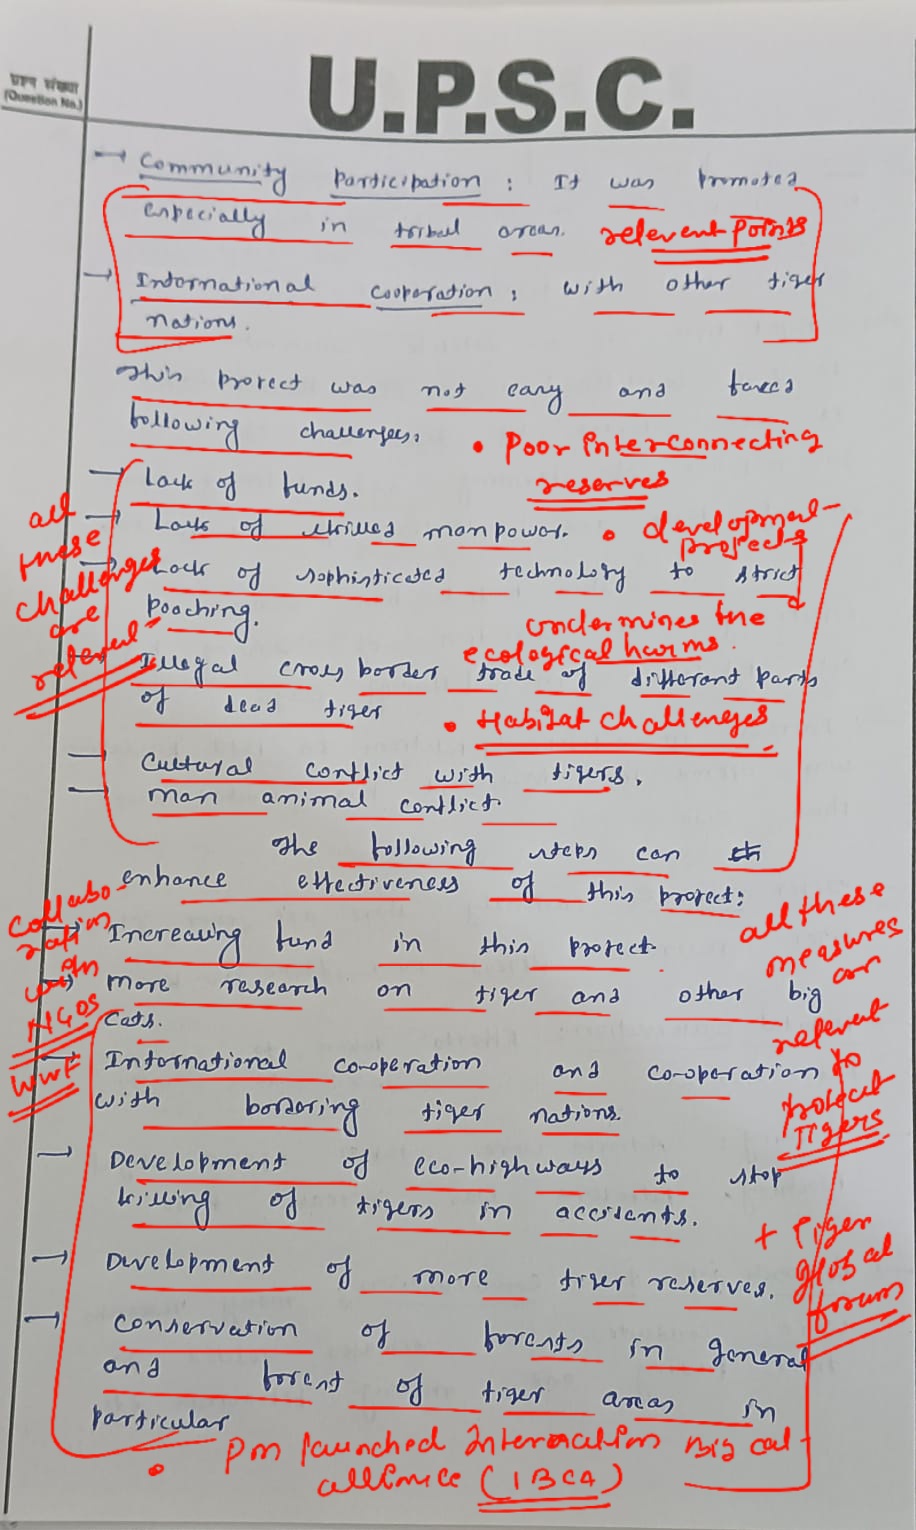 प्रश्न संख्या
(Question No.)
U.P.S.C.
→ Community Participation : It was promoted
especially in tribal areas. relevent points
→ International cooperation : with other tiger
nations.
This project was not easy and faced
following challenges. • Poor interconnecting
reserves
→ Lack of funds.
all these challenges are relevent
→ Lack of skilled manpower. • development projects
→ Lack of sophisticated technology to strict
poaching. undermines the
ecological harms.
→ Illegal cross border trade of different parts
of dead tiger • Habitat challenges
→ Cultural conflict with tigers.
→ man animal conflict.
The following steps can
enhance effectiveness of this project:
Collaboration with NGOs WWF
all these measures are relevent to protect Tigers
→ Increasing fund in this project.
→ more research on tiger and other big
cats.
→ International co-operation and co-operation
with bordering tiger nations.
→ Development of eco-highways to stop
killing of tigers in accidents.
+ Tiger global forum
→ Development of more tiger reserves.
→ conservation of forests in general
and forest of tiger areas in
particular
• PM launched Internation Big cat
alliance (IBCA)